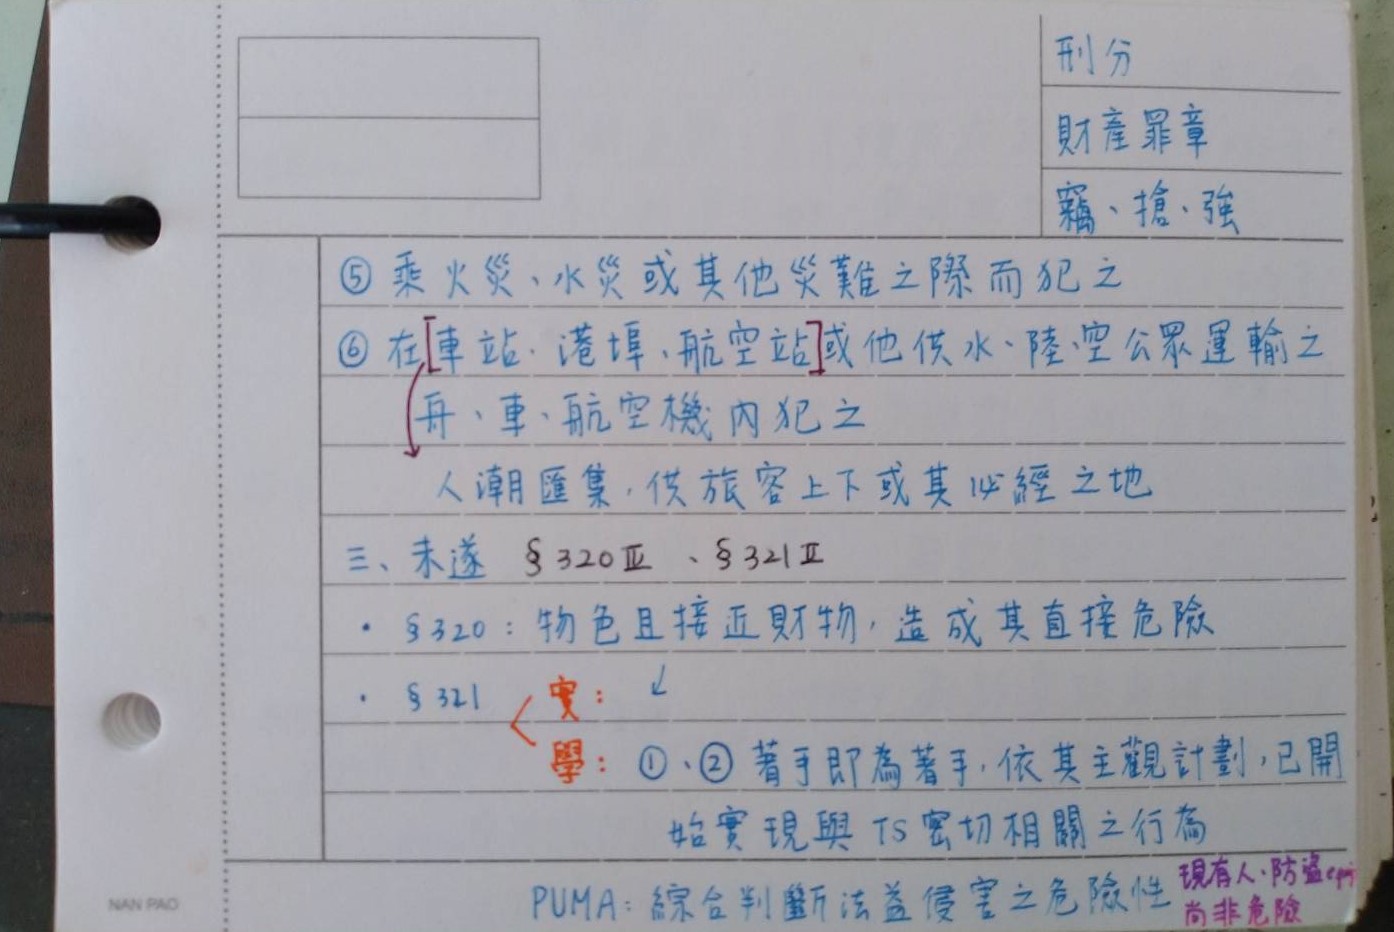 刑分
財產罪章
竊、搶、強
⑤ 乘火災、水災或其他災難之際而犯之
⑥ 在[車站、港埠、航空站]或他供水、陸、空公眾運輸之
舟、車、航空機內犯之
人潮匯集,供旅客上下或其必經之地
三、未遂 §320Ⅲ、§321Ⅱ
・ §320:物色且接近財物,造成其直接危險
・ §321 < 實: ↙
學: ①、② 著手即為著手,依其主觀計劃,已開
始實現與TS密切相關之行為
PUMA:綜合判斷法益侵害之危險性
現有人、防盜
尚非危險
NAN PAO